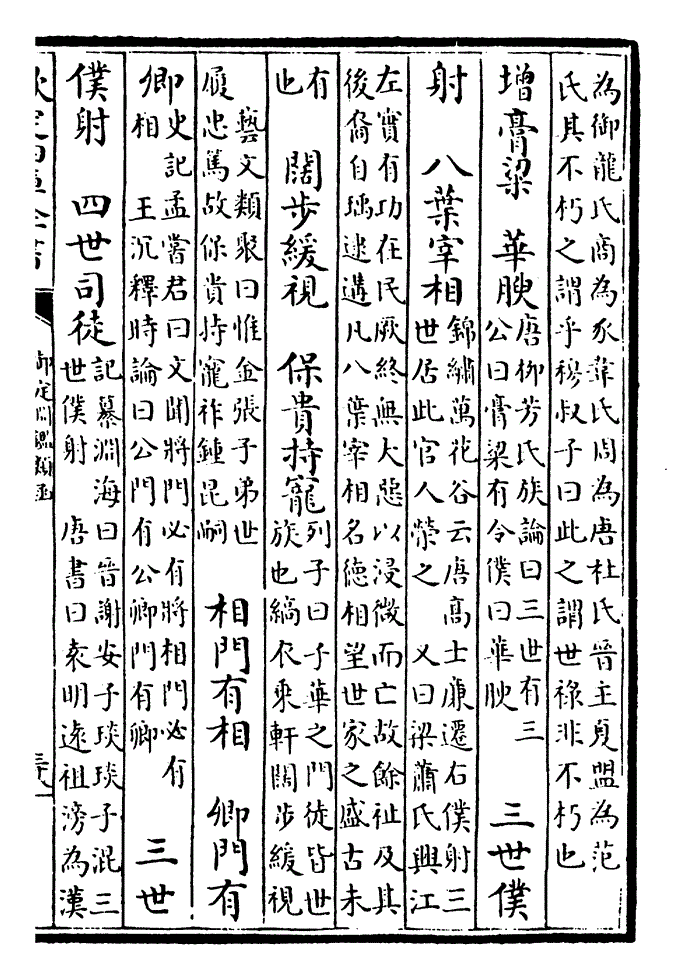 為御龍氏商為豕韋氏周為唐杜氏晉主夏盟為范
氏其不朽之謂乎穆叔子曰此之謂世祿非不朽也
增膏粱 華腴
唐栁芳氏族論曰三世有三
公曰膏粱有令僕曰華腴
三世僕
射 八葉宰相
錦繡萬花谷云唐髙士廉遷右僕射三
世居此官人榮之 又曰梁蕭氏興江
左實有功在民厥終無大惡以浸微而亡故餘祉及其
後裔自瑀逮遘凡八葉宰相名德相望世家之盛古未
有
也
闊步緩視 保貴持寵
列子曰子華之門徒皆世
族也縞衣乘軒闊步緩視
藝文類聚曰惟金張子弟世
履忠篤故保貴持寵祚鍾昆嗣
相門有相 卿門有
卿
史記孟嘗君曰文聞將門必有將相門必有
相 王沉釋時論曰公門有公卿門有卿
三世
僕射 四世司徒
記纂淵海曰晉謝安子琰琰子混三
世僕射 唐書曰袁明遠祖滂為漢
欽定四庫全書
御定淵鑑類函